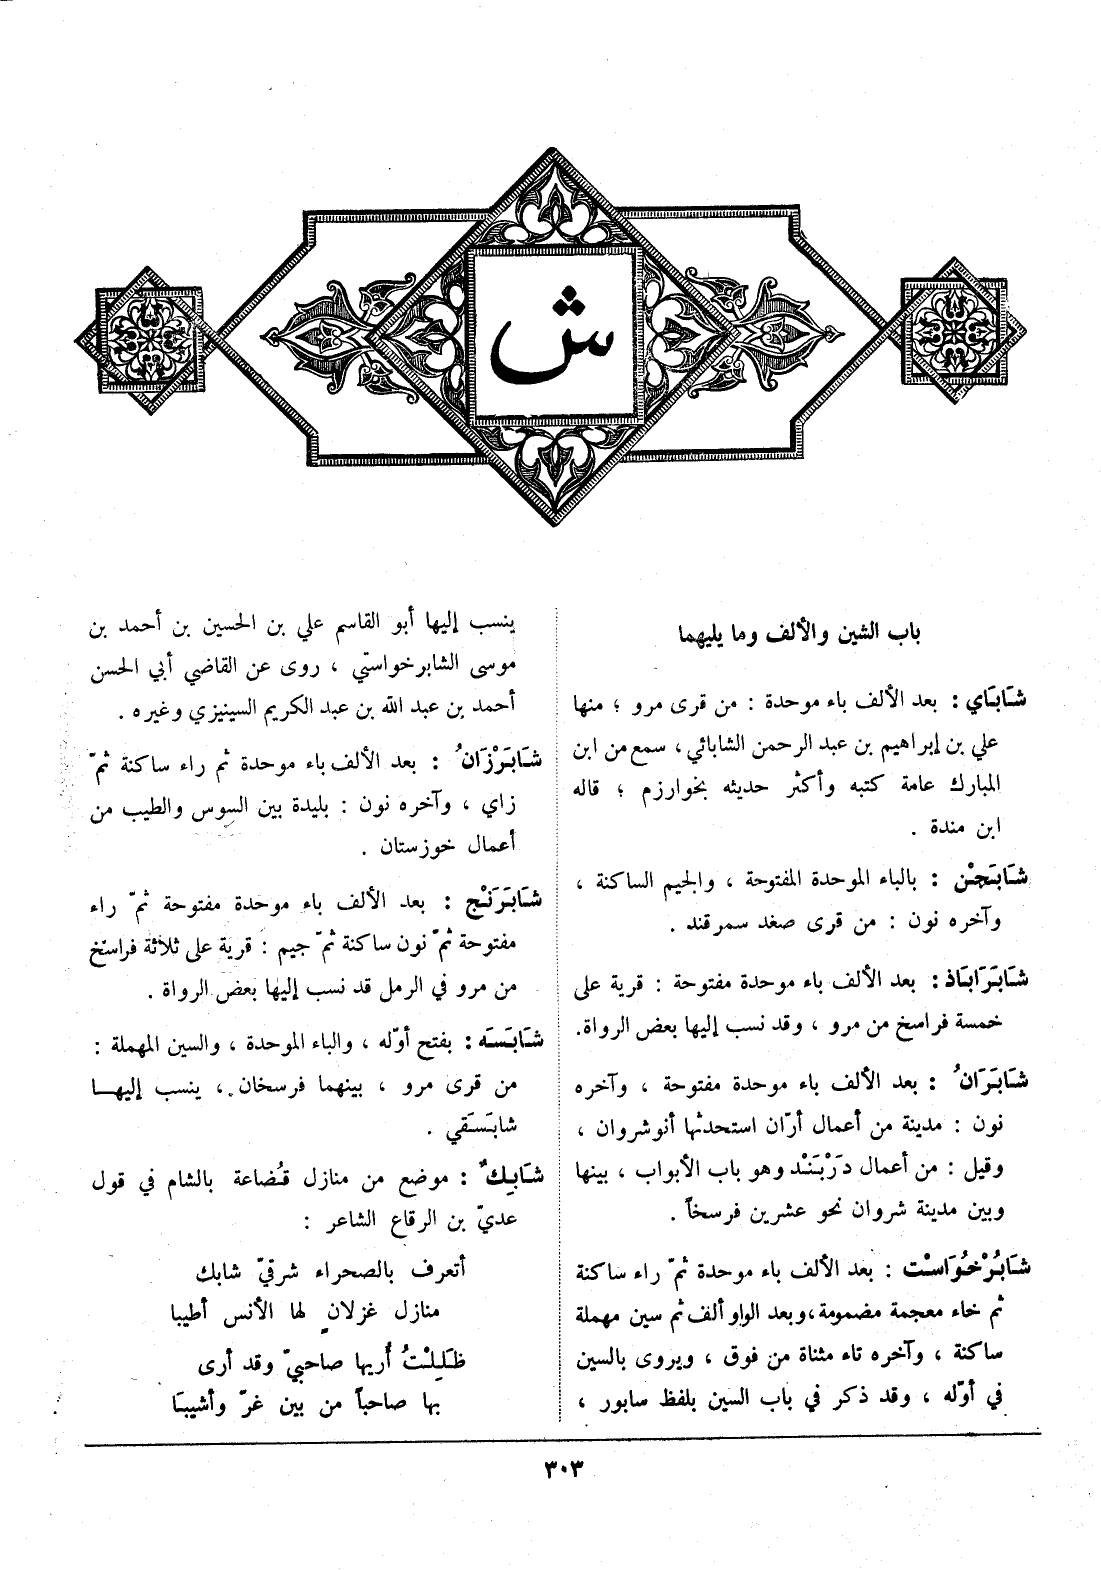 ش
باب الشين والألف وما يليهما
شَابَاي : بعد الألف باء موحدة : من قرى مرو ؛ منها
علي بن إبراهيم بن عبد الرحمن الشابائي ، سمع من ابن
المبارك عامة كتبه وأكثر حديثه بخوارزم ؛ قاله
ابن مندة .
شَابَجْن : بالباء الموحدة المفتوحة ، والجيم الساكنة ،
وآخره نون : من قرى صغد سمرقند .
شَابَرَابَاذ : بعد الألف باء موحدة مفتوحة : قرية على
خمسة فراسخ من مرو ، وقد نسب إليها بعض الرواة.
شَابَرَانُ : بعد الألف باء موحدة مفتوحة ، وآخره
نون : مدينة من أعمال أرّان استحدثها أنوشروان ،
وقيل : من أعمال دَرْبَنْد وهو باب الأبواب ، بينها
وبين مدينة شروان نحو عشرين فرسخاً .
شَابُرْخُوَاسْت : بعد الألف باء موحدة ثمّ راء ساكنة
ثم خاء معجمة مضمومة،وبعد الواو ألف ثم سين مهملة
ساكنة ، وآخره تاء مثناة من فوق ، ويروى بالسين
في أوّله ، وقد ذكر في باب السين بلفظ سابور ،
ينسب إليها أبو القاسم علي بن الحسين بن أحمد بن
موسى الشابرخواستي ، روى عن القاضي أبي الحسن
أحمد بن عبد الله بن عبد الكريم السينيزي وغيره .
شَابَرْزَانُ : بعد الألف باء موحدة ثم راء ساكنة ثمّ
زاي ، وآخره نون : بليدة بين السوس والطيب من
أعمال خوزستان .
شَابَرَنْج : بعد الألف باء موحدة مفتوحة ثمّ راء
مفتوحة ثمّ نون ساكنة ثمّ جيم : قرية على ثلاثة فراسخ
من مرو في الرمل قد نسب إليها بعض الرواة .
شَابَسَه : بفتح أوّله ، والباء الموحدة ، والسين المهملة :
من قرى مرو ، بينهما فرسخان ، ينسب إليهـا
شابَسَقي .
شَابِكٌ : موضع من منازل قُضاعة بالشام في قول
عديّ بن الرقاع الشاعر :
أتعرف بالصحراء شرقيّ شابك
منازل غزلانٍ لها الأنس أطيبا
ظَلِلْتُ أُريها صاحبيّ وقد أرى
بها صاحباً من بين غرّ وأشيبَا
٣٠٣